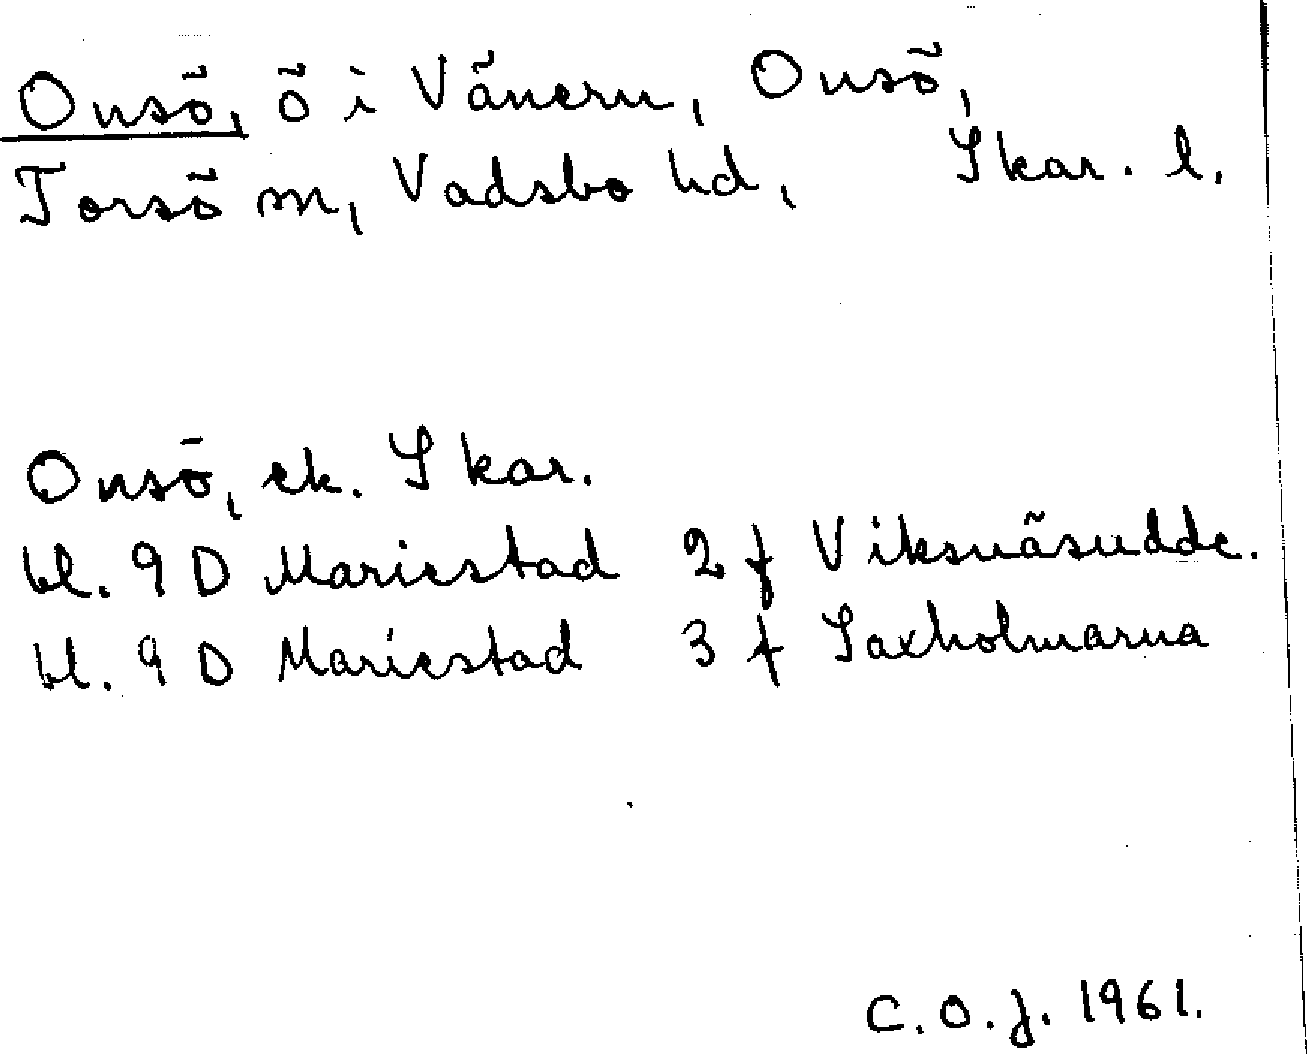 Onsö, ö i Vänern, Onsö,
Torsö sn, Vadsbo hd, Skar. l.
Onsö, ek. Skar.
bl. 9 D Mariestad 2 f Viksnäsudde.
bl. 9 D Mariestad 3 f Saxholmarna
C.O.J. 1961.